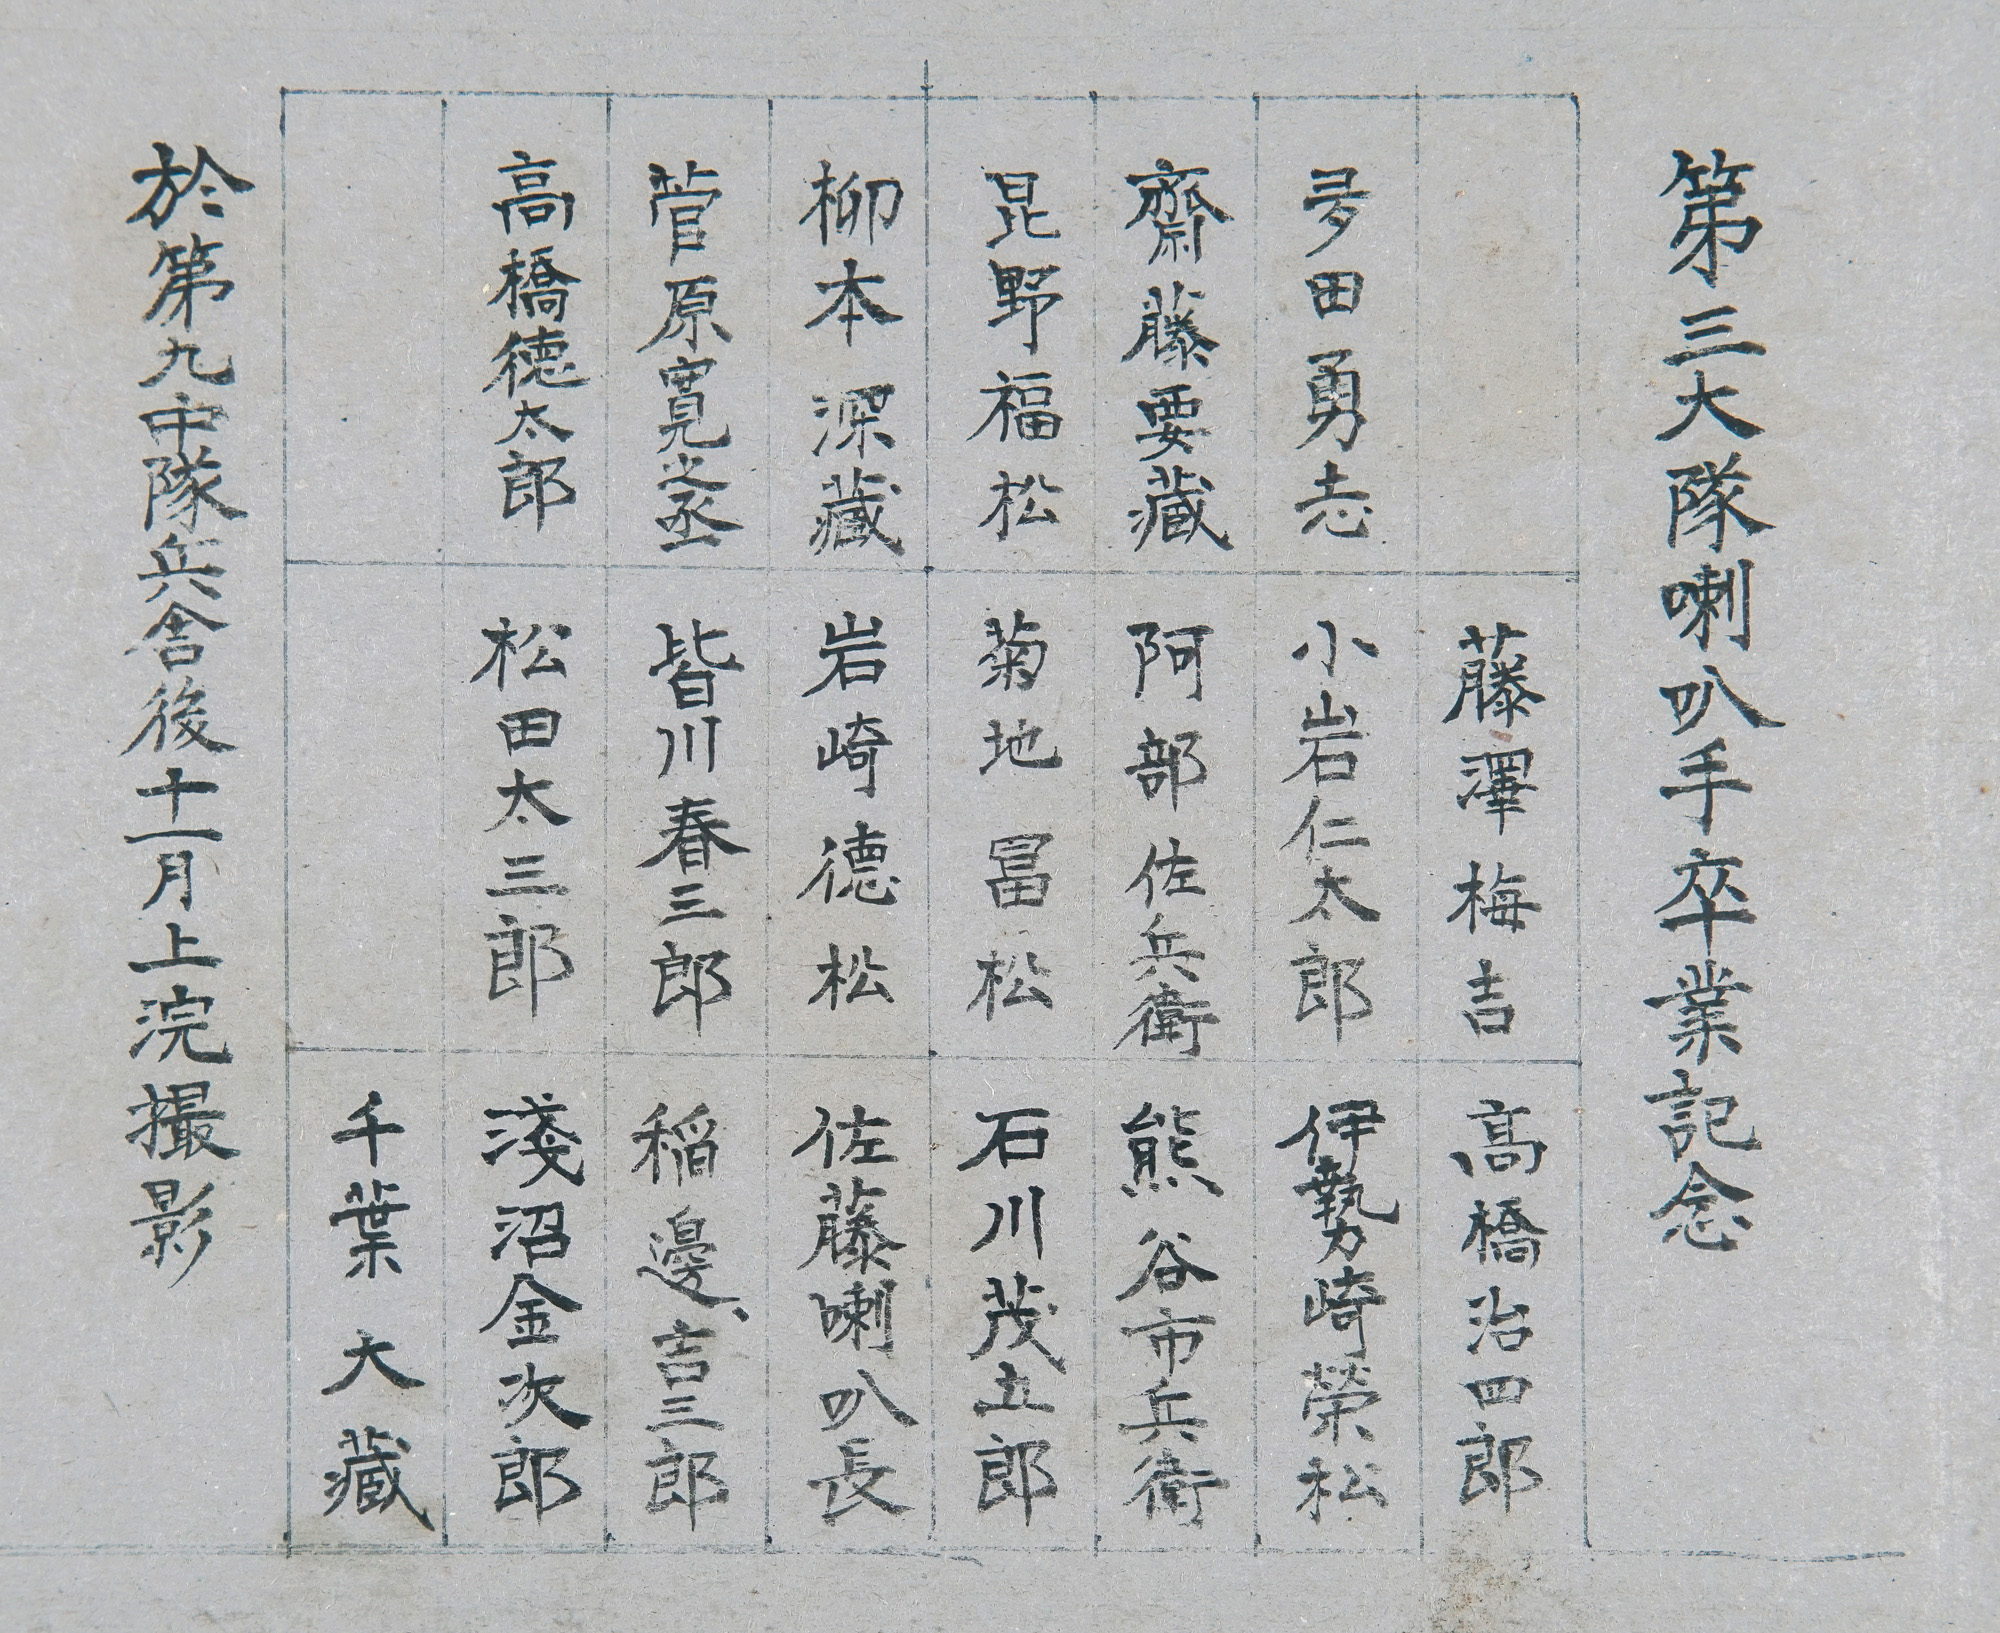 第三大隊喇叭手卒業記念
夛田勇志
齋藤要藏
昆野福松
柳本深藏
菅原寛之丞
高橋徳太郎
藤澤梅吉
小岩仁太郎
阿部佐兵衛
菊地冨松
岩崎德松
皆川春三郎
松田太三郎
高橋治四郎
伊勢崎榮松
熊谷市兵衛
石川茂五郎
佐藤喇叭長
稲邊吉三郎
淺沼金次郎
千葉大藏
於第九中隊兵舎後十一月上浣撮影